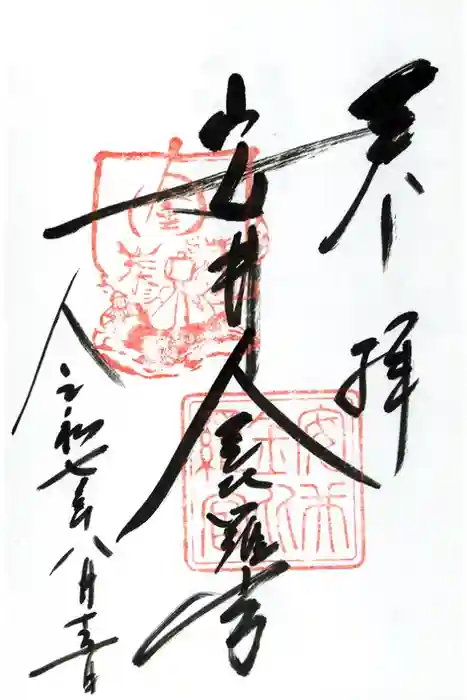 奉拝
安井金比羅宮
令和七年八月十三日
安井
金比
羅宮